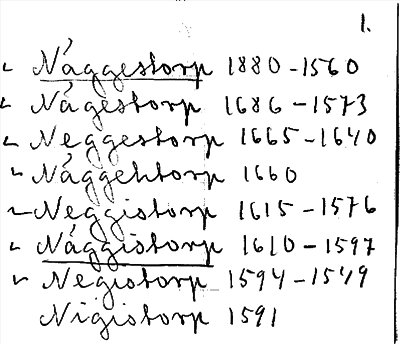 1.
Näggestorp 1880-1560
Nägestorp 1686-1573
Neggestorp 1665-1640
Näggehtorp 1660
Neggistorp 1615-1576
Näggistorp 1610-1597
Negistorp 1594-1549
Nigistorp 1591